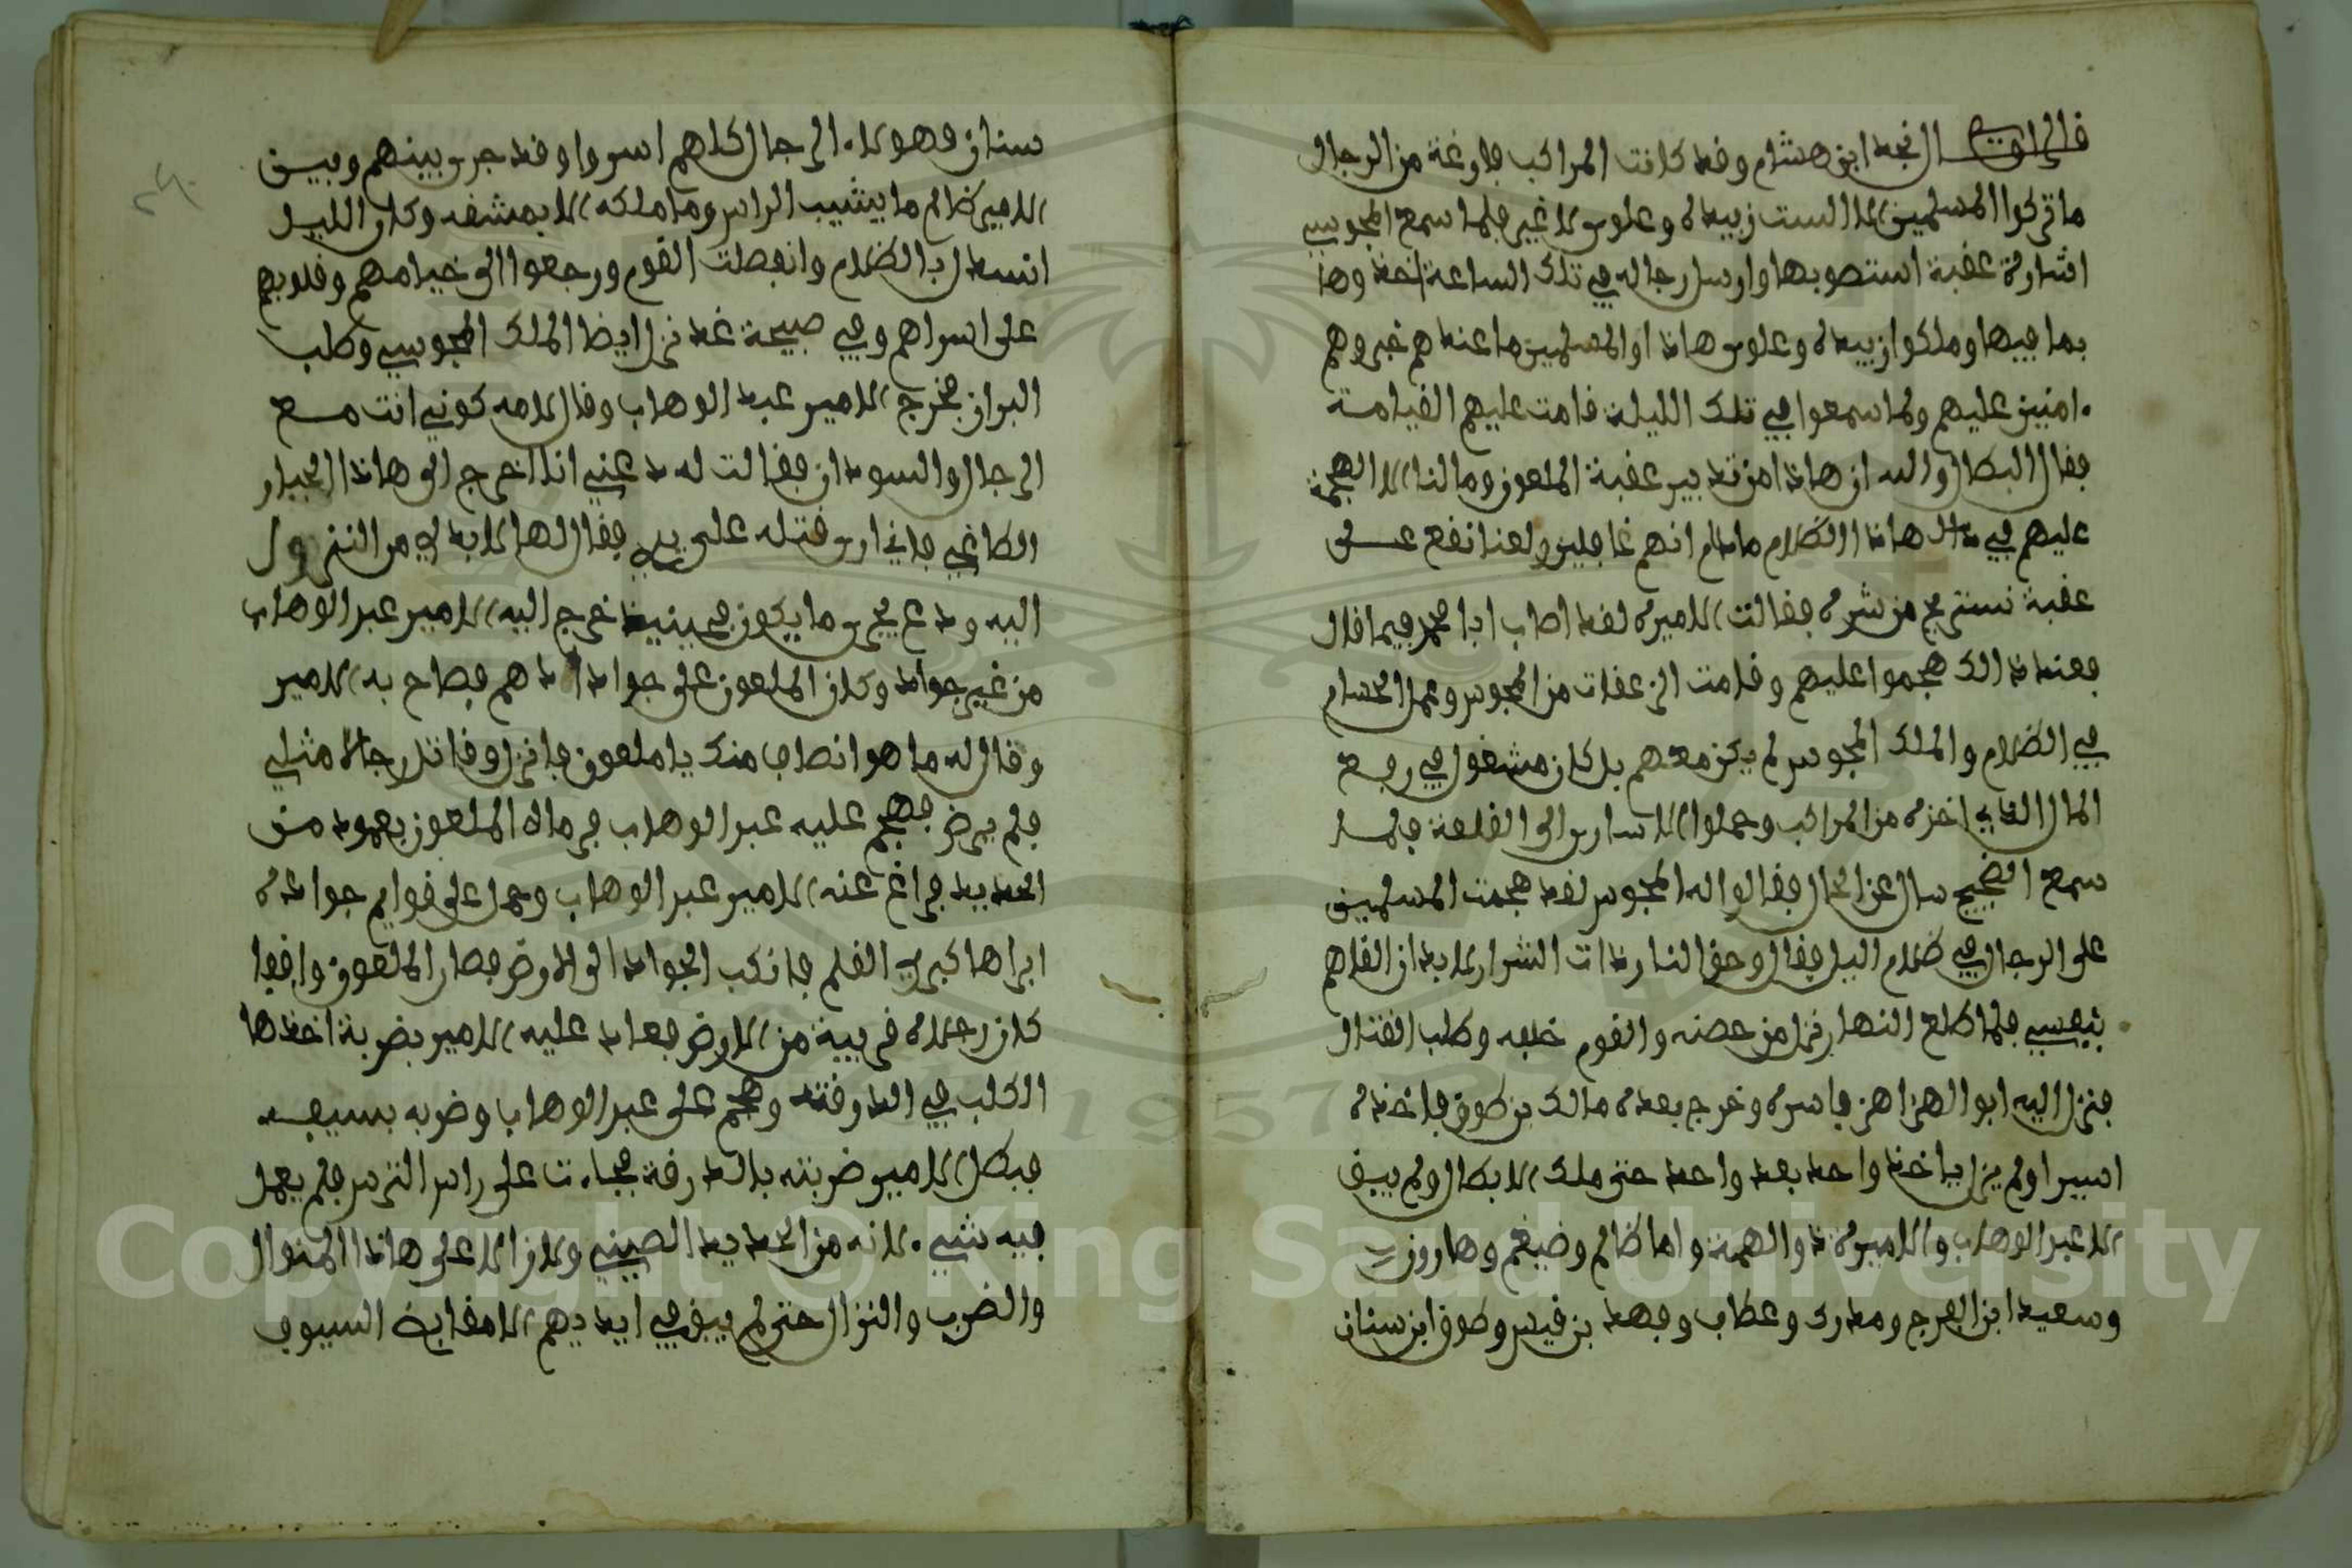 قال الراوي النجد ابن هشام وقد كانت المراكب فارغة من الرجال
ما تركوا المسلمين الا الست زبيدة وعلوس لا غير فلما سمع المجوسي
اشارة عقبة استصوبها وارسل رجاله في تلك الساعة اخذوها
بما فيها وملكوا زبيدة وعلوس هاذا والمسلمين ما عندهم خبر وهم
ءامنين عليهم ولما سمعوا في تلك الليلة قامت عليهم القيامة
فقال البطال والله ان هاذا من تدبير عقبة الملعون وما لنا الا الهجمة
عليهم في هاذا الظلام ما دام انهم غافلين ولعنا نقع على
عقبة نستريح من شره فقالت الاميره لقد اصاب ابا محمد فيما قال
فعند ذالك هجموا عليهم وقامت الزعقات من المجوس وعمل الحسام
في الظلام والملك المجوس لم يكن معهم بل كان مشغول في رفع
المال الذي اخذه من المراكب وحملوا الاسارى الى القلعة فلما
سمع الضجيج سال عن الحال فقالوا له المجوس لقد هجمت المسلمين
على الرجال في ظلام اليل فقال وحق النار ذات الشرار لا بد ان القاهم
بنفسي فلما طلع النهار نزل من حصنه والقوم خلفه وطلب القتال
فنزل اليه ابو الهزاهز فاسره وخرج بعده مالك بن طوق فاخذه
اسيرا ولم يزل ياخذ واحد بعد واحد حتى ملك الابطال ولم يبق
الا عبد الوهاب والاميرة ذو الهمة واما ظالم وضيغم وهارون
وسعيد ابن الفرج ومدرك وعطاب وفهد بن قيس وطوق ابن سنان
سنان فهولاء الرجال كلهم اسروا وقد جرى بينهم وبين
الامير ظالم ما يشيب الراس وما ملكه الا بمشقه وكان الليل
انسدل بالظلام وانفصلت القوم ورجعوا الى خيامهم وقلوبهم
على اسراهم وفي صبيحة غد نزل ايضا الملك المجوسي وطلب
البراز فخرج الامير عبد الوهاب وقال لامه كوني انت مع
الرجال والسودان فقالت له دعني انا اخرج الى هاذا الجبار
الطاغي فاني ارى قتله على يدي فقال لها لا بد لي من النزول
اليه ودع يجرى ما يكون فيينيذ خرج اليه الامير عبد الوهاب
من غير جواد وكان الملعون على جواد ادهم فصاح به الامير
وقال له ما هو انصاف منك يا ملعون فانزل وقاتل رجالا مثلي
فلم يرض فهجم عليه عبد الوهاب فرماه الملعون بعمود من
الحديد فراغ عنه الامير عبد الوهاب وحمل على قوايم جواده
ابراها كبري القلم فانكب الجواد الى الارض فصار الملعون واقفا
كان رجلاه قريبة من الارض فعاد عليه الامير بضربة اخذها
الكلب في الدرقته وهجم على عبد الوهاب وضربه بسيفه
فبطل الامير ضربته بالدرقة فجاءت على راس الترس فلم يعمل
فيه شيء لانه من الحديد الصيني ولازالا على هاذا المنوال
والضرب والنزال حتى لم يبق في ايديهم الا مقابض السيوف
Copyright © King Saud University
1957